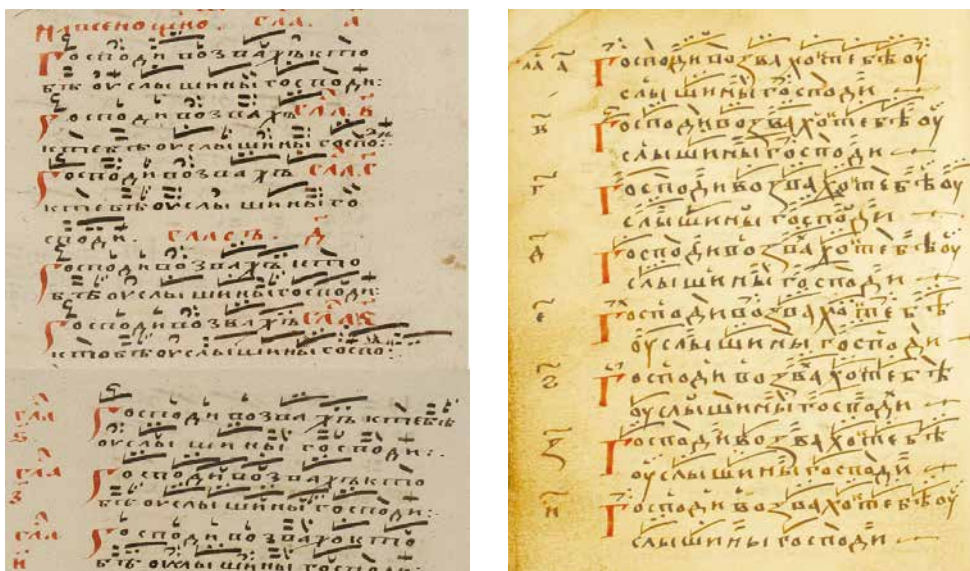 Навсенощно. Гла. а
Господи возвахъ кто
бѣ оуслышины господи:
Господи возвахъ Гла. в
ктебѣ оуслышины госпо:
Господи возвахъ Гла. г
ктебѣ оуслышины го
споди. Гласъ. д
Господи возвахъ кто
бѣ оуслышины господи:
Господи возвахъ Гла. е
ктобѣ оуслышины госпо:.
Гла ѕ Господи возвахъ ктебѣ
оуслышины господи:.
Гла з Господи возвахъ кто
бѣ оуслышины господи:
Гла и Господи возвахо кто
бѣ оуслышины господи
гла а Господи возвахо ктебѣ оу
слышины господи
в Господи возвахо ктебѣ оу
слышины господи
г Господи возвахо ктебѣ оу
слышины господи
д Господи возвахо ктебѣ оу
слышины господи
е Господи возвахо ктебѣ
оуслышины господи
ѕ Господи возвахо ктебѣ
оуслышины господи
з Господи возвахо ктебѣ
оуслышины господи
и Господи возвахо ктебѣ оу
слышины господи